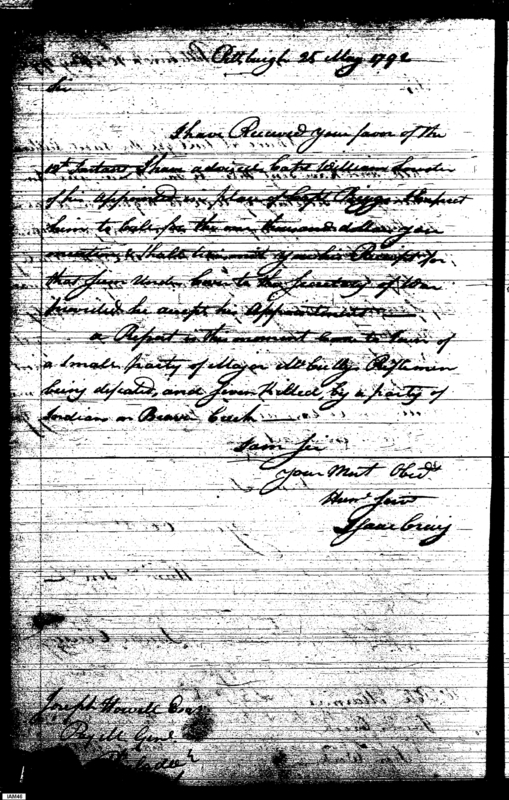 Pittsburgh 25 May 1792
Sir
I have Received your favor of the
Instant I have advised Capt William
of his Appointment in place of Capt Biggs & Expect
him to call for the one thousand dollars you
mention, & I shall transmit you his Receipt for
that Sum Under Cover to the Secretary of War
provided he accepts his Appointment
a Report is this moment come to Town of
a small party of Major McCullys Riflemen
being defeated, and seven Killed, by a party of
Indians on Beaver Creek
I am Sir
Your Most Obedt
Huml Servt
Isaac Craig
Joseph Howell Esqr
Paym Genl
IAM46